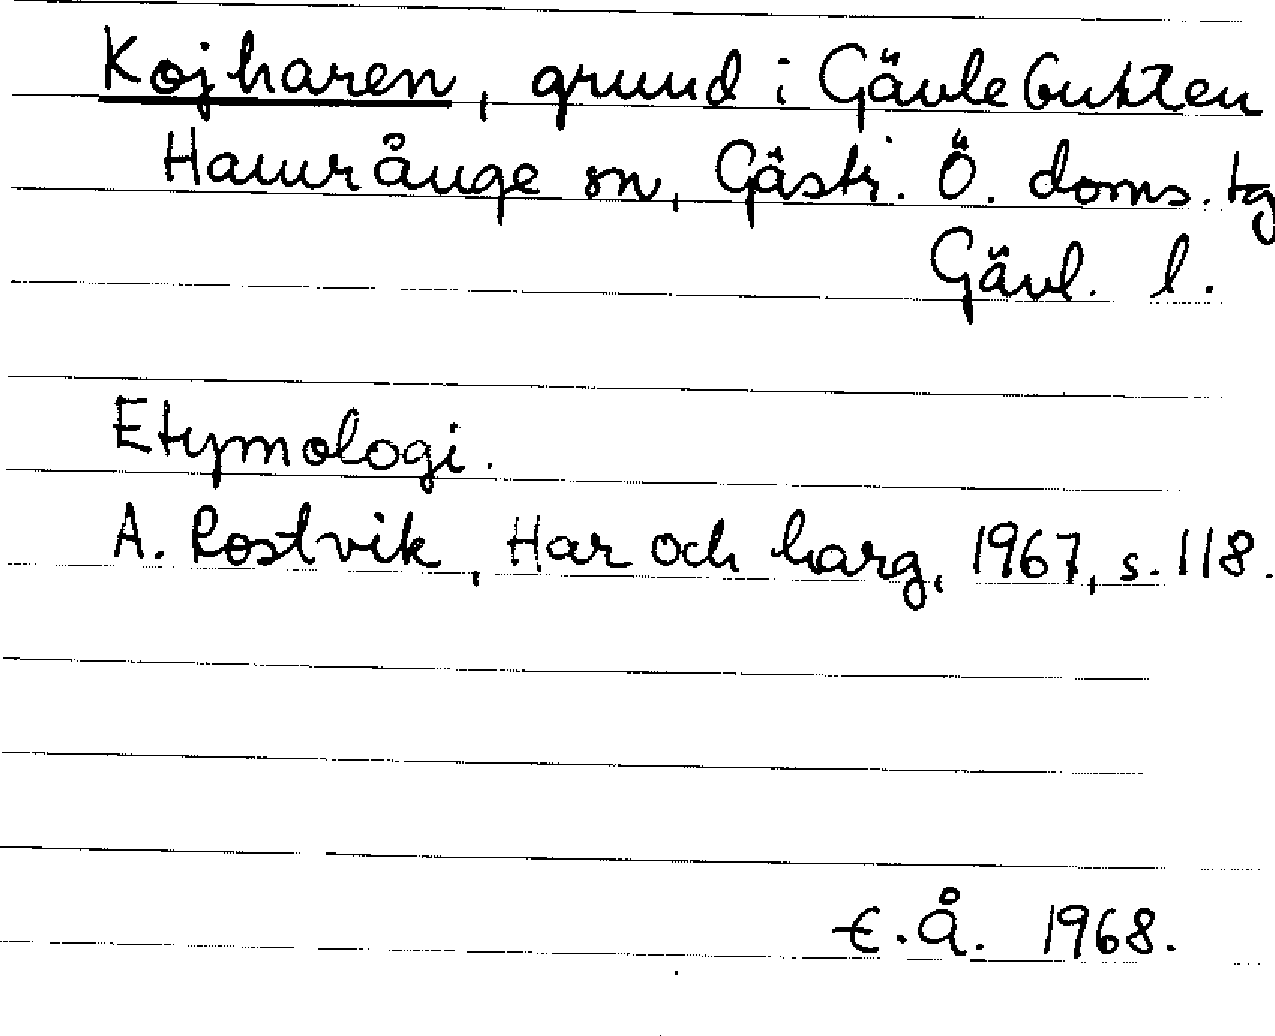 Kojharen, grund i Gävlebukten
Hamrånge sn, Gästr. Ö. doms. tg
Gävl. l.
Etymologi.
A. Rostvik, Har och harg, 1967, s. 118.
E.Å. 1968.